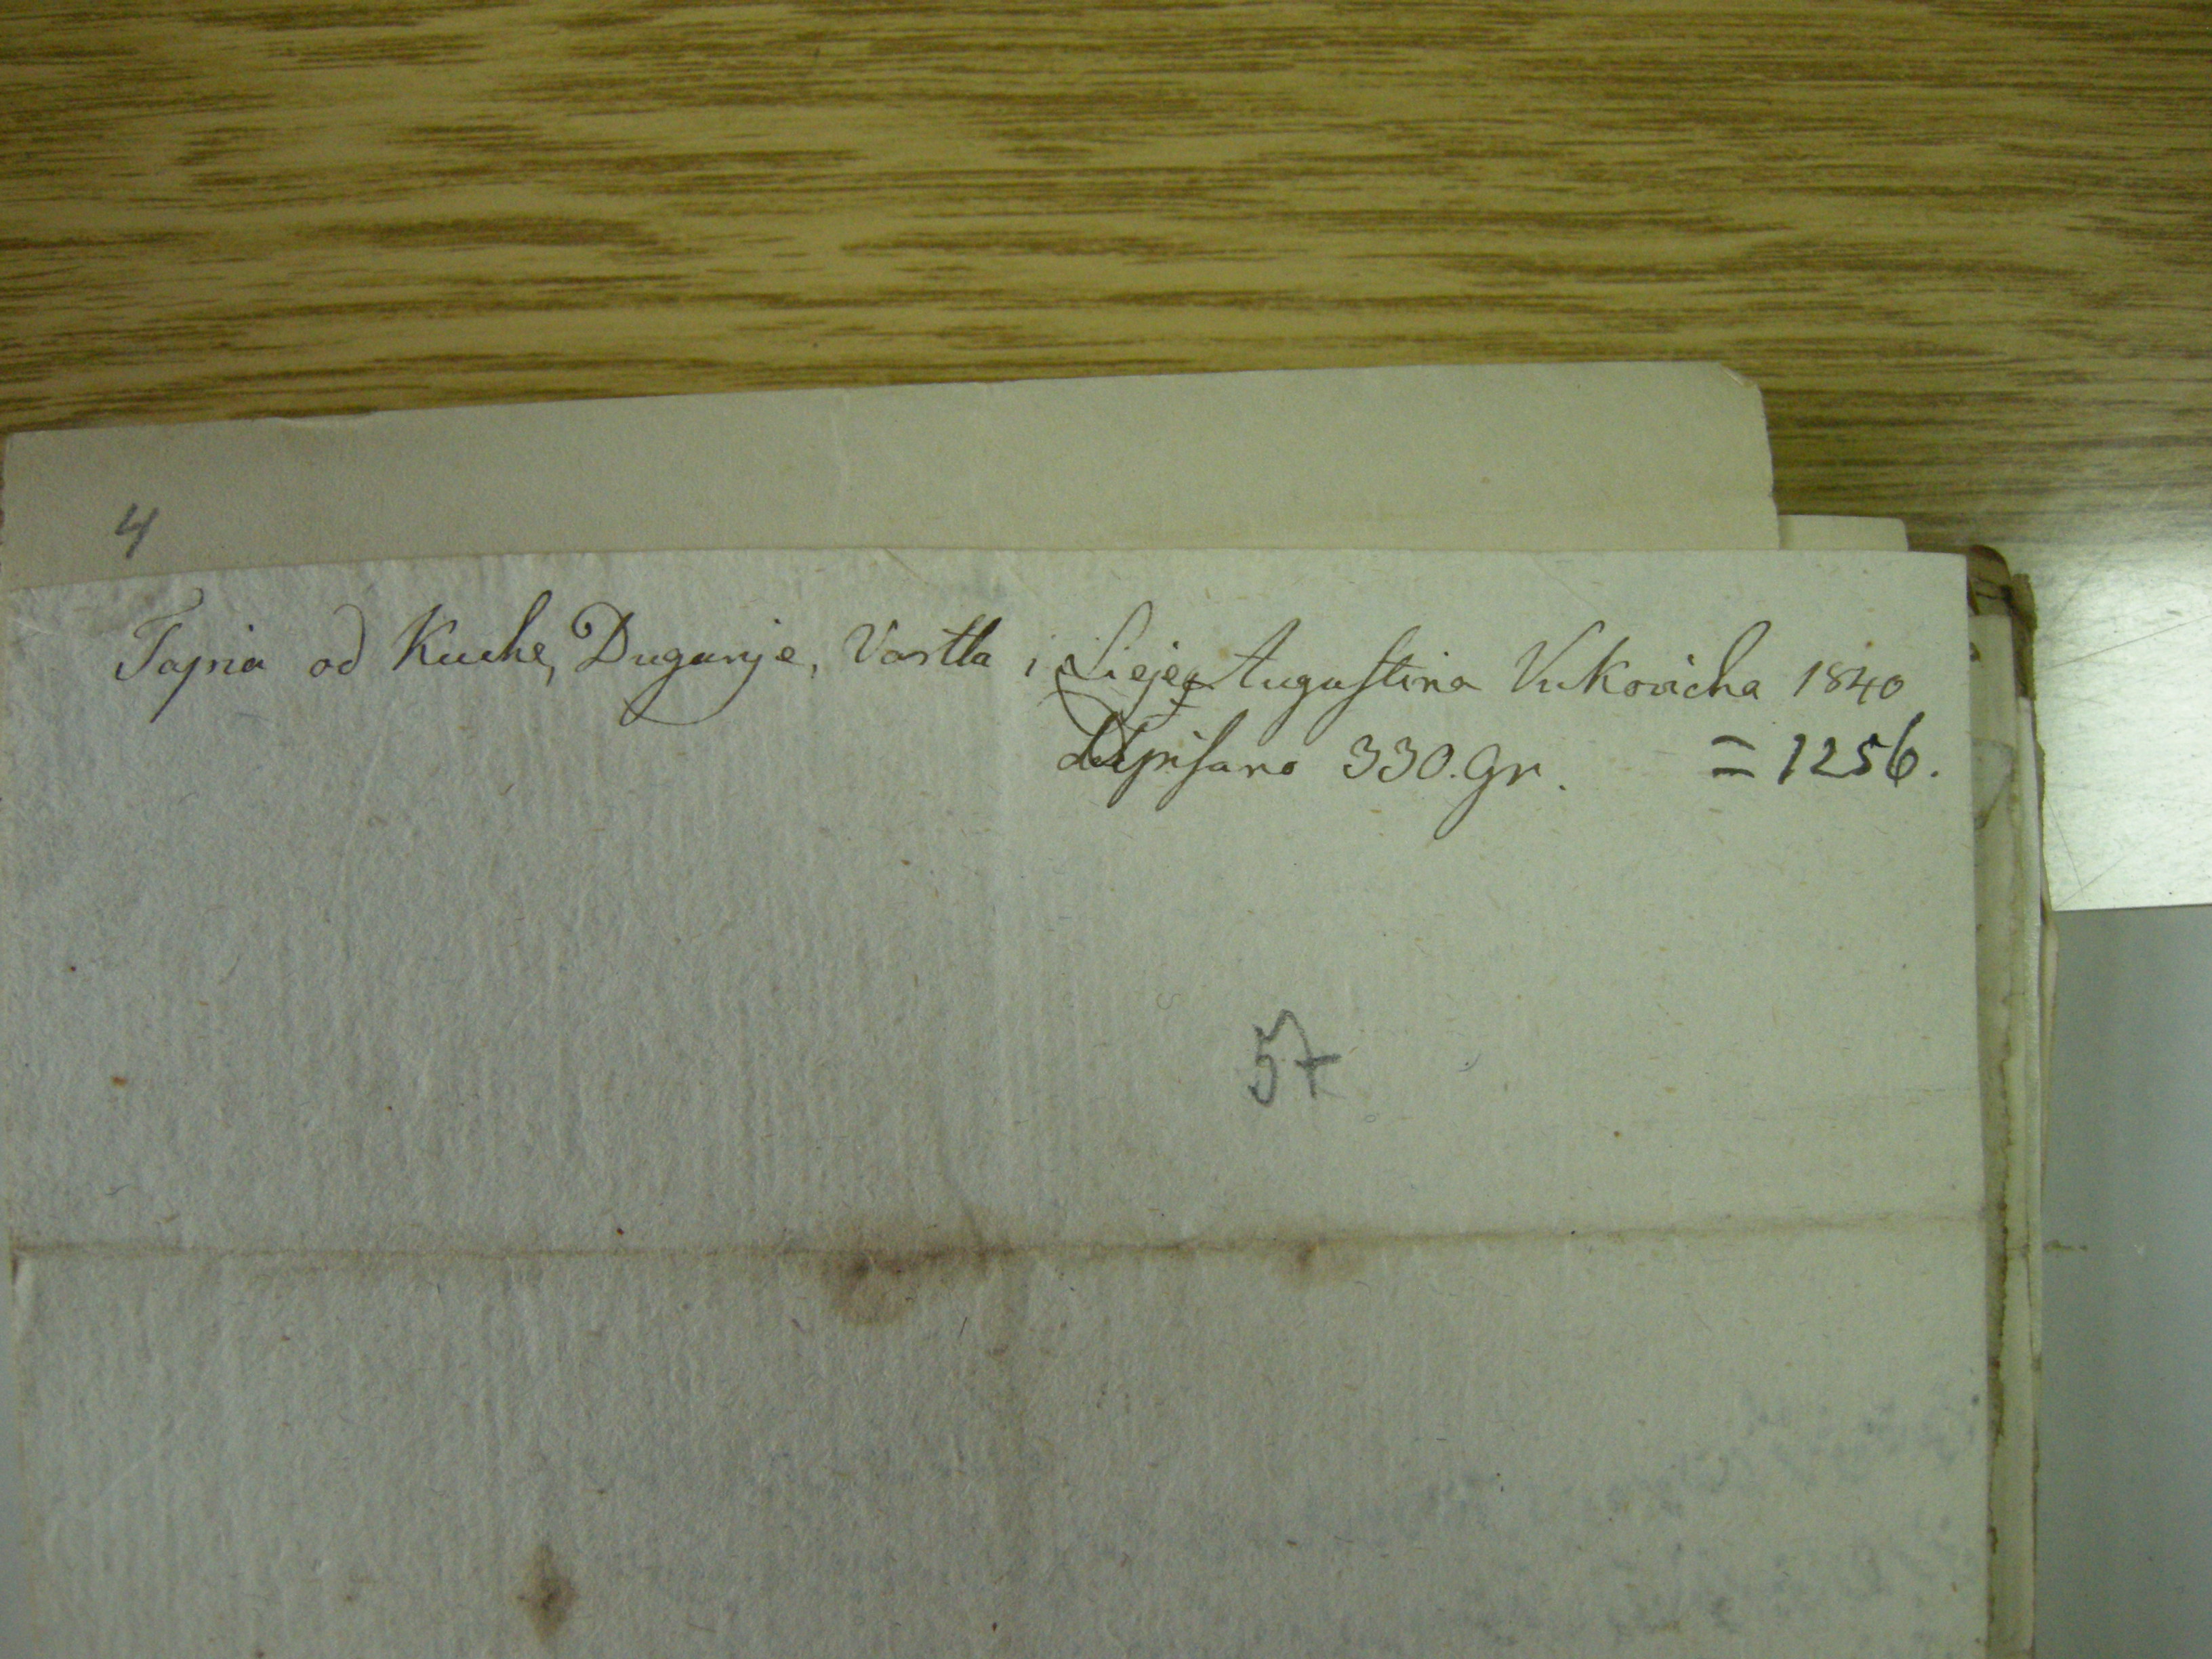 4
Tapia od Kuche, Duganje, Vartla i Sieje Augustina Vukovicha 1840
330. gr. = 1256.
57